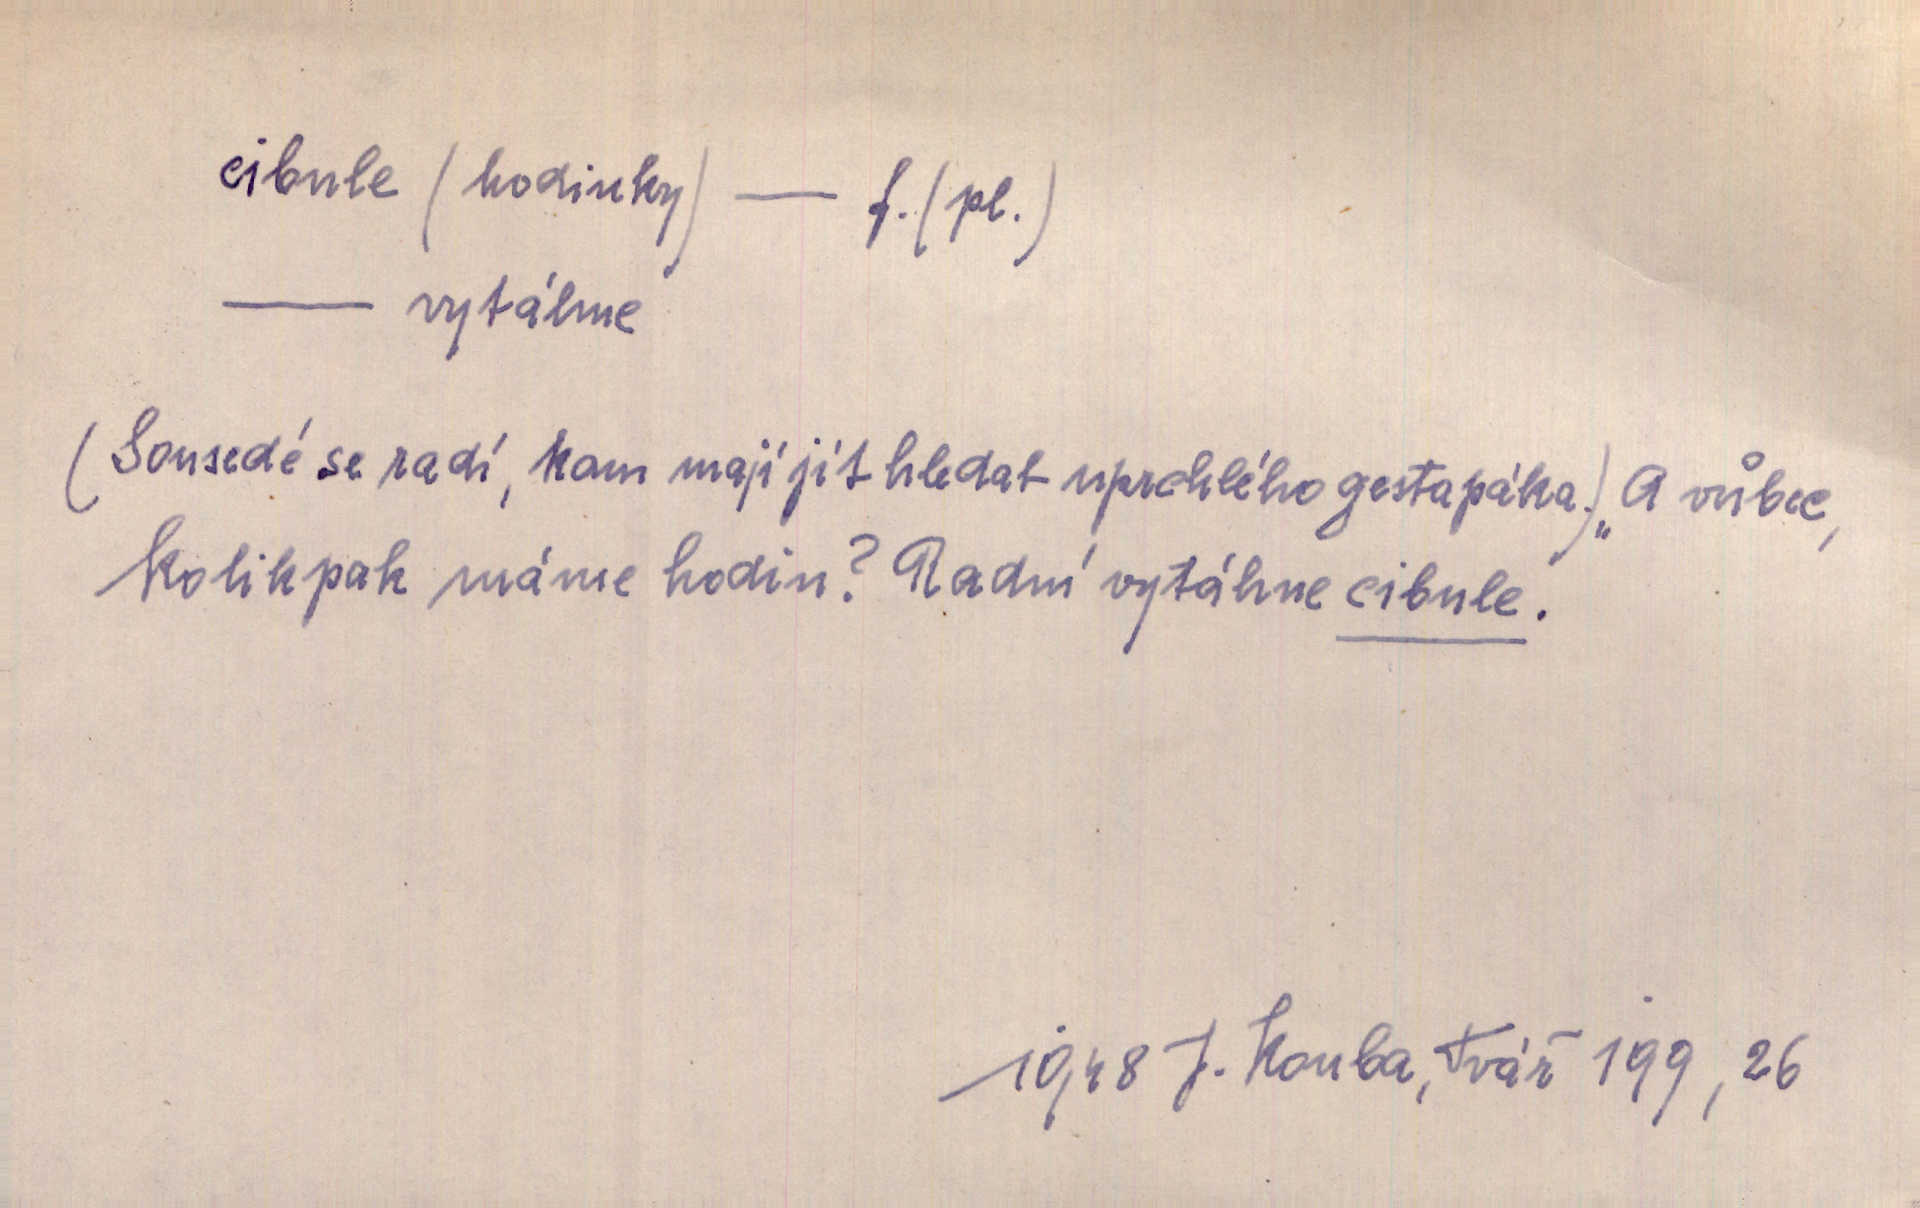 cibule (hodinky) — f. (pl.)
— vytáhne
(Sousedé se radí, kam mají jít hledat uprchlého gestapáka.) „A vůbec,
kolikpak máme hodin? Radní vytáhne cibule.
1948 J. Kouba, Tvář 199, 26